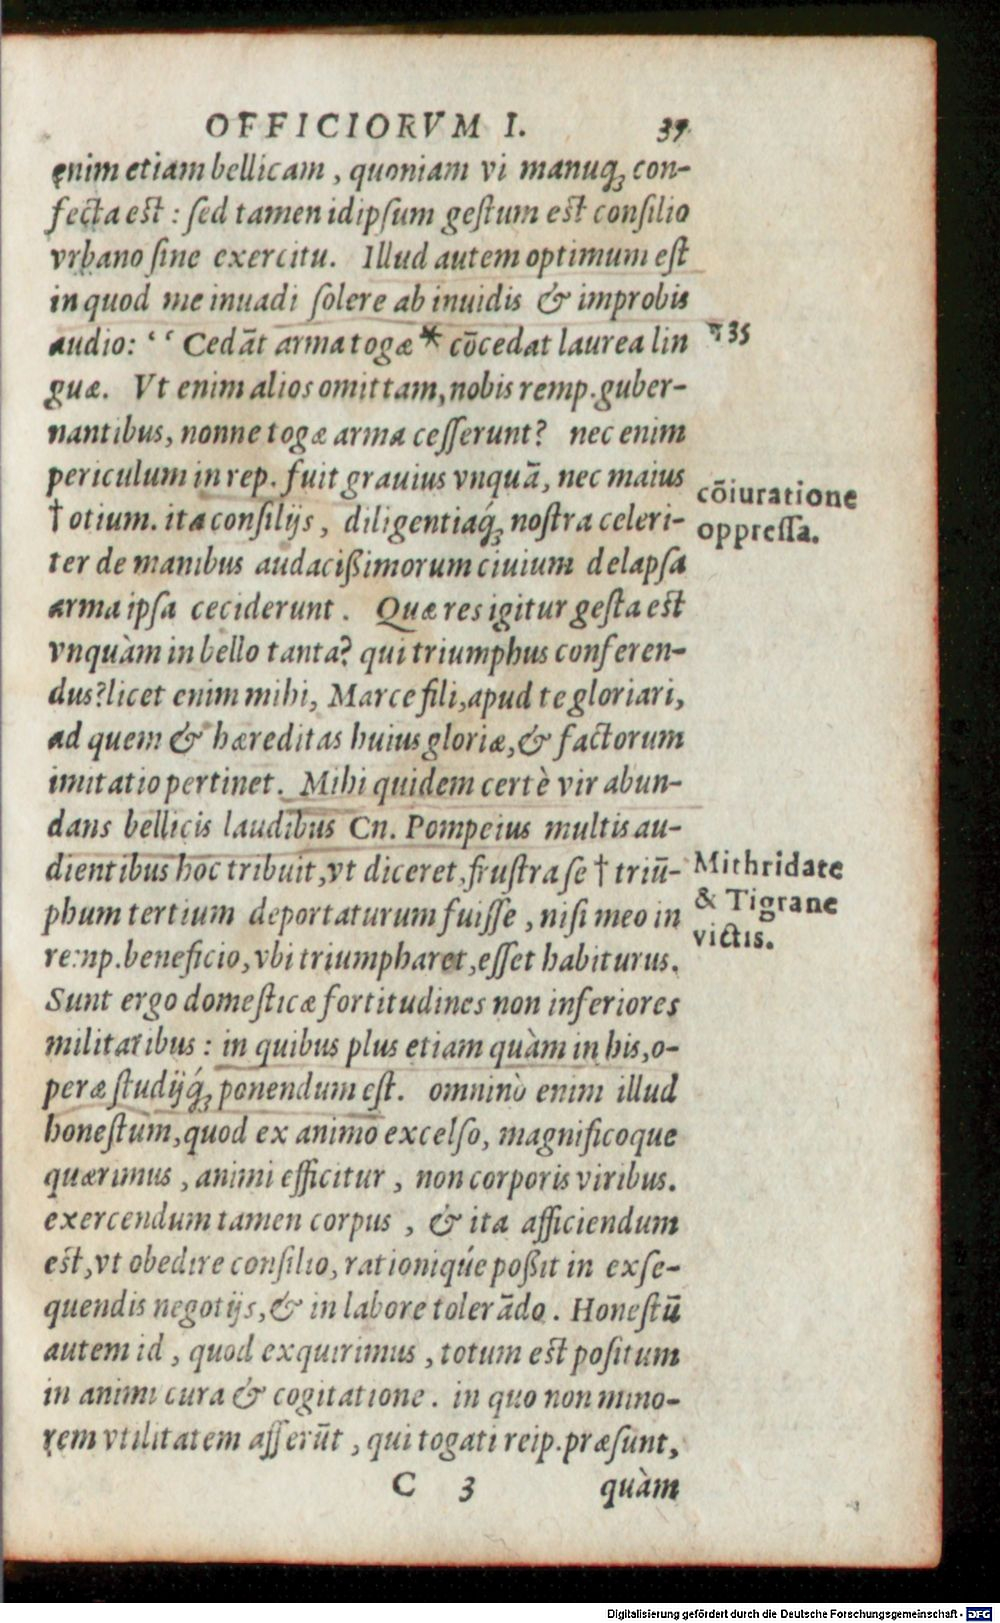 OFFICIORVM I. 37
enim etiam bellicam, quoniam vi manuq́ꝫ con-
fecta est: sed tamen id ipsum gestum est consilio
vrbano sine exercitu. Illud autem optimum est
in quod me inuadi solere ab inuidis & improbis
audio: ‘‘ Cedāt arma togæ * cōcedat laurea lin
guæ. Vt enim alios omittam, nobis remp. guber-
nantibus, nonne togæ arma cesserunt? nec enim
periculum in rep. fuit grauius vnquā, nec maius
† otium. ita consilijs, diligentiaq́ꝫ nostra celeri-
ter de manibus audacißimorum ciuium delapsa
arma ipsa ceciderunt. Quæ res igitur gesta est
vnquàm in bello tanta? qui triumphus conferen-
dus? licet enim mihi, Marce fili, apud te gloriari,
ad quem & hæreditas huius gloriæ, & factorum
imitatio pertinet. Mihi quidem certè vir abun-
dans bellicis laudibus Cn. Pompeius multis au-
dientibus hoc tribuit, vt diceret, frustra se † triū-
phum tertium deportaturum fuisse, nisi meo in
remp. beneficio, vbi triumpharet, esset habiturus.
Sunt ergo domesticæ fortitudines non inferiores
militaribus: in quibus plus etiam quàm in his, o-
peræ studijq́ꝫ ponendum est. omninò enim illud
honestum, quod ex animo excelso, magnificoque
quærimus, animi efficitur, non corporis viribus.
exercendum tamen corpus, & ita afficiendum
est, vt obedire consilio, rationiqúe poßit in exse-
quendis negotijs, & in labore tolerādo. Honestū
autem id, quod exquirimus, totum est positum
in animi cura & cogitatione. in quo non mino-
rem vtilitatem afferūt, qui togati reip. præsunt,
C 3 quàm
35
cōiuratione
oppressa.
Mithridate
& Tigrane
victis.
Digitalisierung gefördert durch die Deutsche Forschungsgemeinschaft - DFG